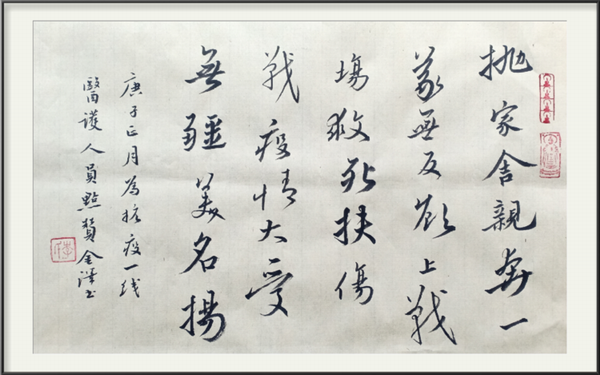 抛家舍親奔一
義無反顧上戰
場救死扶傷
戰疫情大愛
無疆美名揚
庚子正月為抗疫一线
醫護人員點贊金澤书